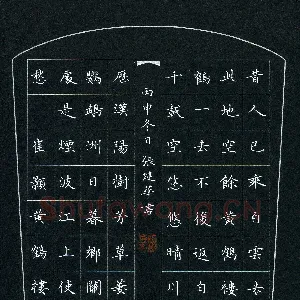 昔人已乘白雲去
此地空餘黃鶴樓
鶴一去不復返白
千載空悠悠晴川
丙申冬日張建華書
應漢陽樹芳草萋
鸚鵡洲日暮鄉關
處是煙波江上使
愁 崔顥黃鶴樓